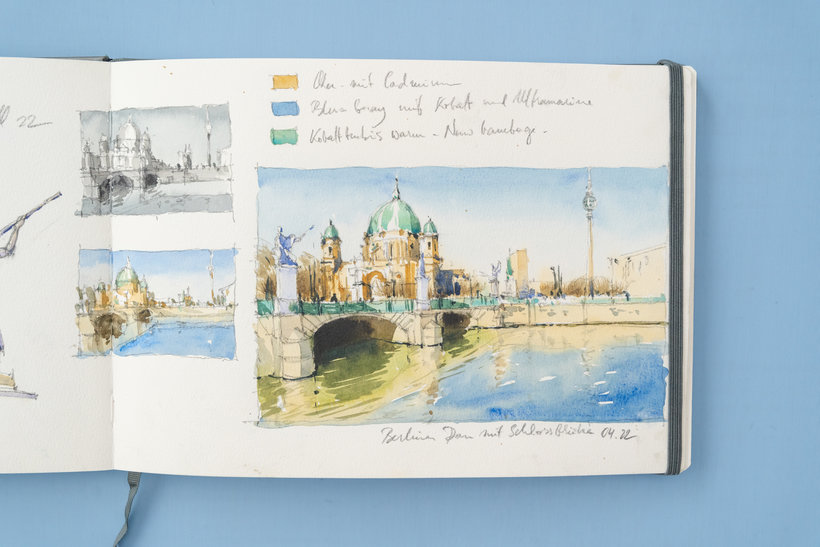 22
Ocker mit Cadmium
Blau Grau mit Kobalt und Ultramarine
Kobalttürkis warm - New Gamboge -
Berliner Dom mit Schlossbrücke 04.22